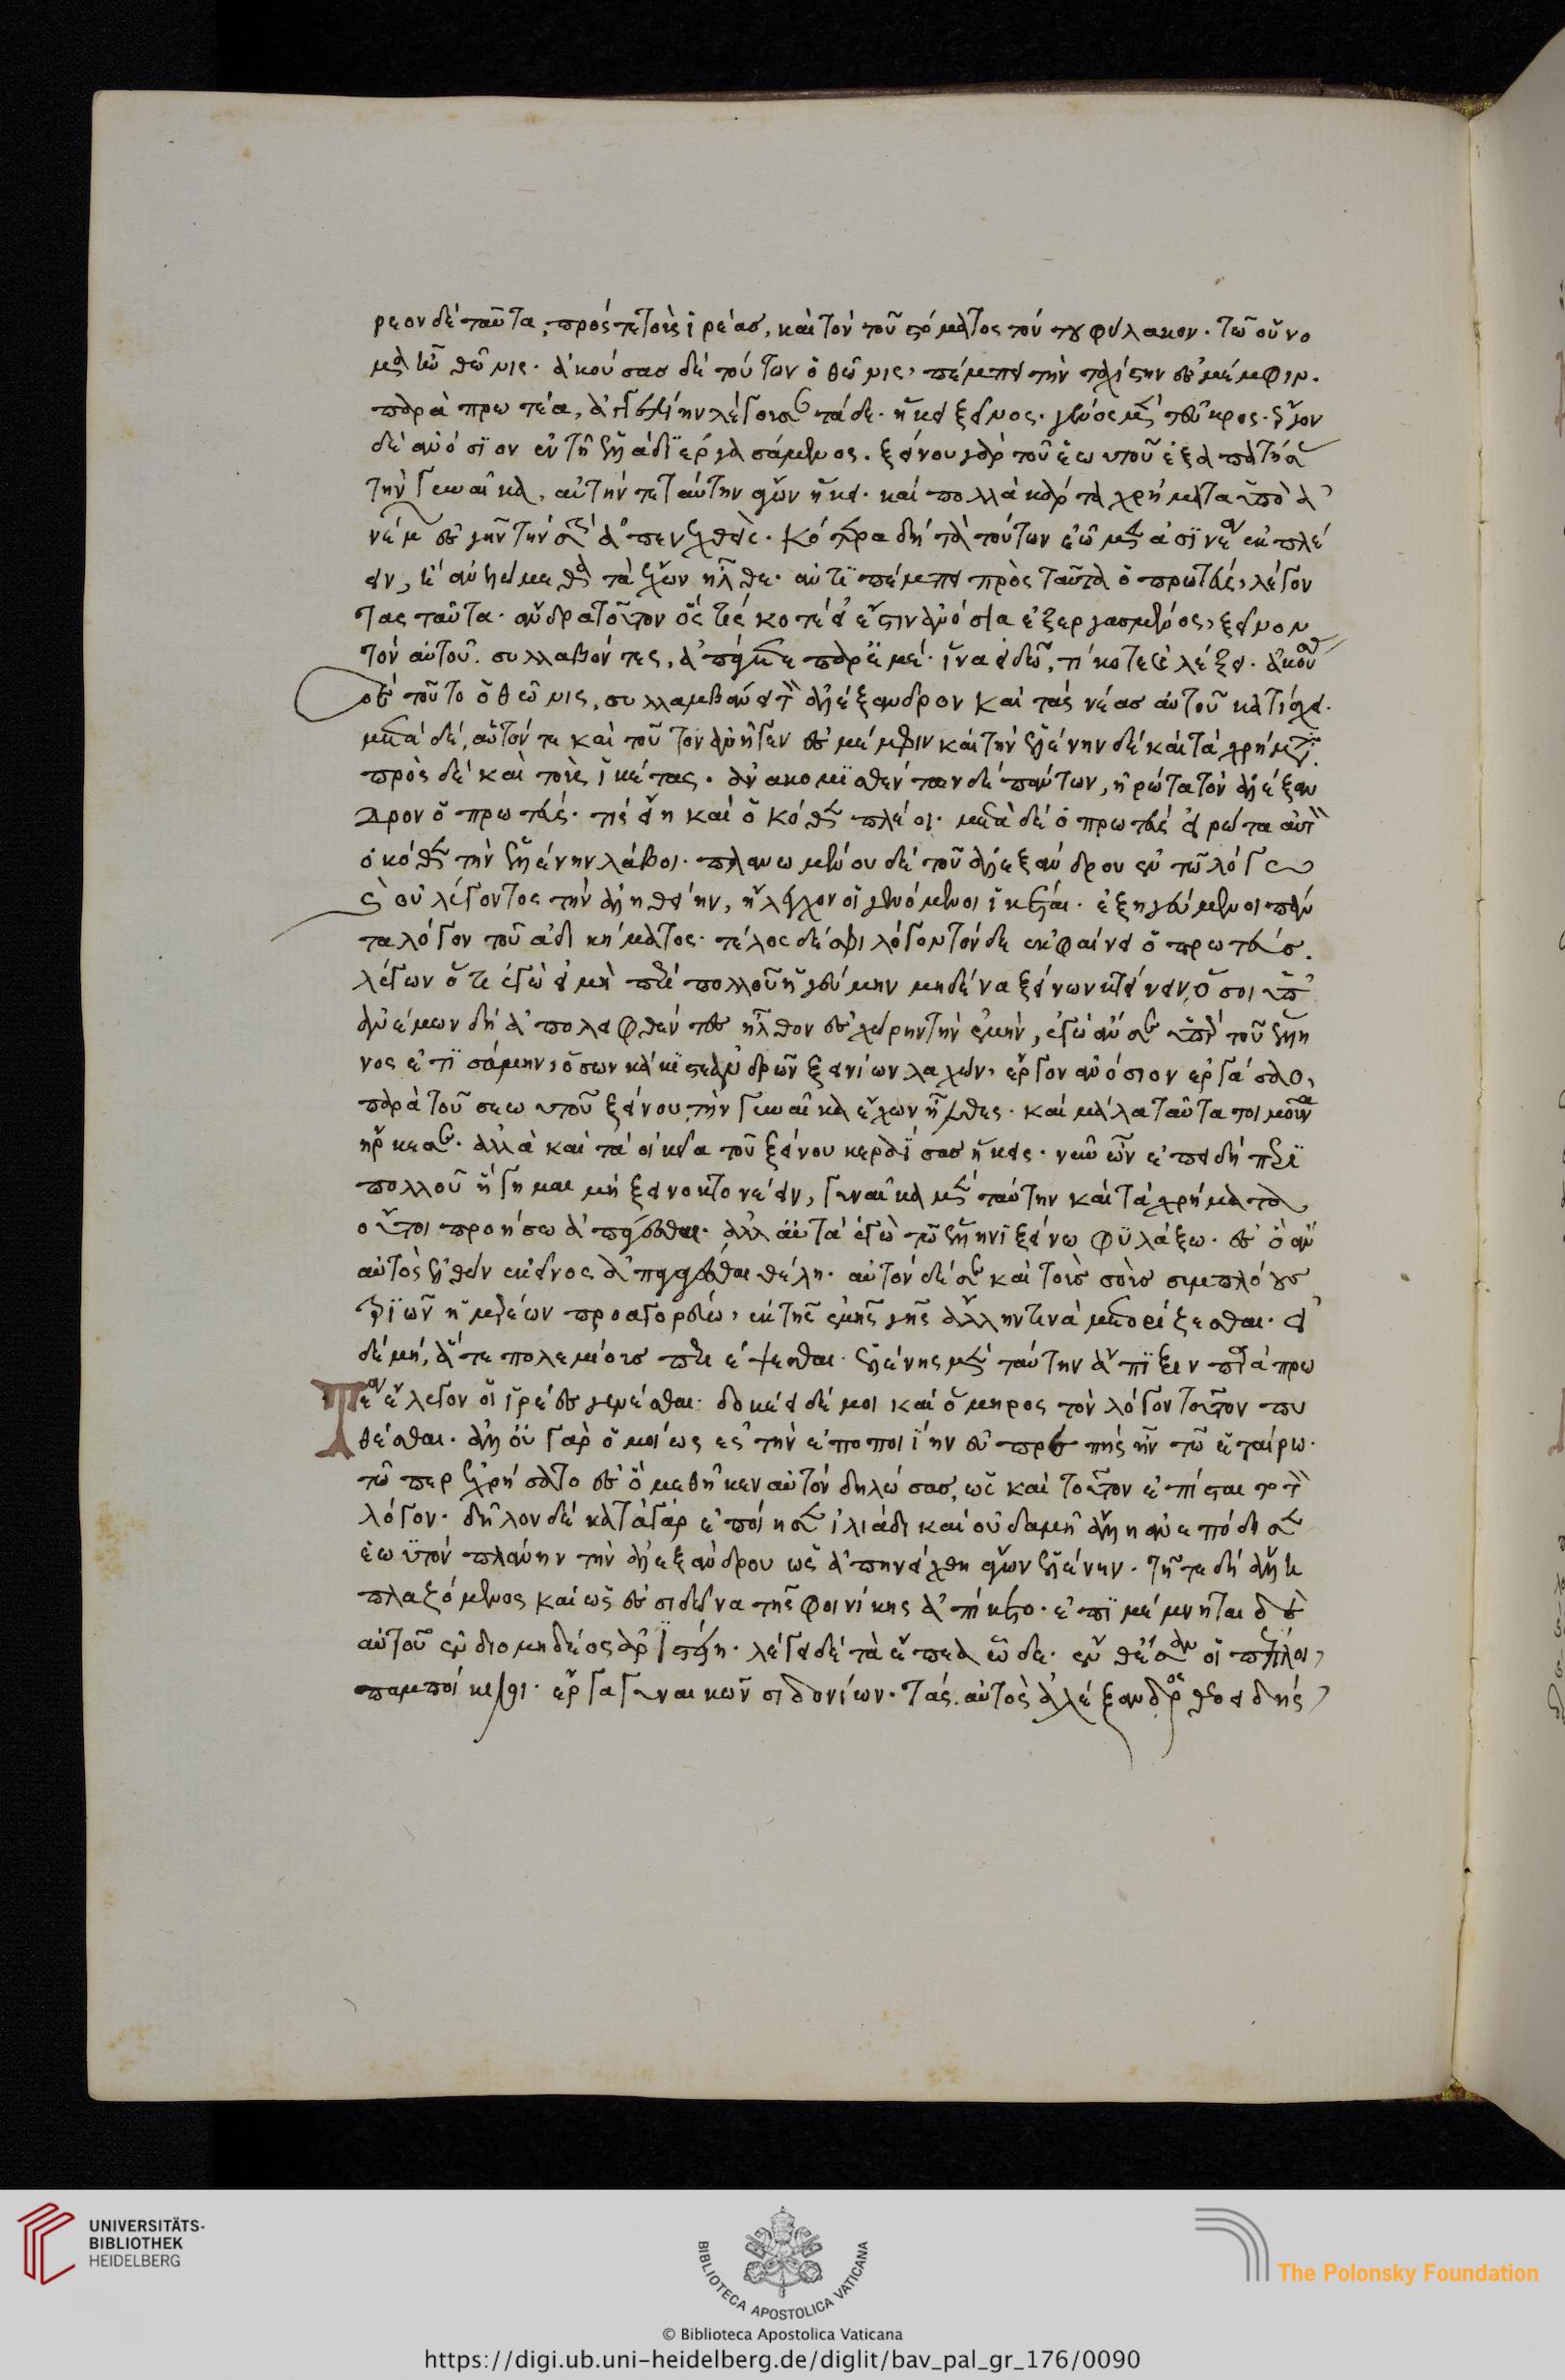 ρεον δὲ ταῦτα, πρός τε τοὺς ἱρέας, καὶ τὸν τοῦ στόματος τούτου φύλακον. τῶ οὔνο
μα ἦν θῶνις. ἀκούσας δὲ τούτων ὁ θῶνις, πέμπει τὴν ταχίστην ἐς μέμφιν.
παρὰ πρωτέα, ἀγγελίην λέγουσαν τάδε. ἥκει ξεῖνος. γένος μὲν τεῦκρος. ἔργον
δὲ ἀνόσιον ἐν τῆ ἑλλάδι ἐργασάμενος. ξείνου γὰρ τοῦ ἑωυτοῦ ἐξαπατήσας
τὴν γυναῖκα, αὐτήν τε ταύτην ἄγων ἥκει. καὶ πολλὰ κάρτα χρήματα ὑπὸ ἀ
νέμων ἐς γῆν τὴν σὴν ἀπενειχθείς. κότερα δῆτα τοῦτον ἐῶμεν ἀσινέα ἐκπλέ
ειν, ἢ ἀφελώμεθα τὰ ἔχων ἦλθε. ἀντιπέμπει πρὸς ταῦτα ὁ πρωτεύς, λέγον
τας ταῦτα. ἄνδρα τοῦτον ὅστις κοτέ εἶ ἐστιν ἀνόσια ἐξεργασμένος, ξεῖνον
τὸν αὑτοῦ. συλλαβόντες, ἀπάγετε παρ' ἐμέ. ἵνα εἰδῶ, τί κοτε λέξει. ἀκούσας
δὲ τοῦτο ὁ θῶνις, συλλαμβάνει τὸν ἀλέξανδρον καὶ τὰς νέας αὐτοῦ κατίσχει.
μετὰ δὲ, αὐτόν τε καὶ τοῦτον ἀνήγαγεν ἐς μέμφιν καὶ τὴν ἑλένην δὲ καὶ τὰ χρήματα.
πρὸς δὲ καὶ τοὺς ἱκέτας. ἀνακομισθέντων δὲ πάντων, ἠρώτα τὸν ἀλέξαν
δρον ὁ πρωτεύς. τίς εἴη καὶ ὁκόθεν πλέοι. μετὰ δὲ ὁ πρωτεύς εἰρώτα αὐτὸν
ὁκόθεν τὴν ἑλένην λάβοι. πλανωμένου δὲ τοῦ ἀλεξάνδρου ἐν τῶ λόγω
καὶ οὐ λέγοντος τὴν ἀληθείην, ἤλεγχον οἱ γενόμενοι ἱκέται. ἐξηγεύμενοι πάν
τα λόγον τοῦ ἀδικήματος. τέλος δὲ σφι λόγον τόνδε ἐκφαίνει ὁ πρωτεύς.
λέγων ὅτι ἐγὼ εἰ μὴ περὶ πολλοῦ ἡγεύμην μηδένα ξείνων κτείνειν, ὅσοι ὑπ'
ἀνέμων δὴ ἀπολειφθέντες ἦλθον ἐς χώρην τὴν ἐμὴν, ἐγὼ ἄν σε ὑπὲρ τοῦ ἕλλη
νος ἐτισάμην, ὃς ὦ κάκιστε ἀνδρῶν ξεινίων λαχών, ἔργον ἀνόσιον ἐργάσαο,
παρὰ τοῦ σεωυτοῦ ξείνου τὴν γυναῖκα ἔχων ἦλθες. καὶ μάλα ταῦτά τοι μοῦνα
ἤρκεσεν. ἀλλὰ καὶ τὰ οἰκία τοῦ ξείνου κεραΐσας ἥκεις. νῦν ὦν ἐπειδὴ περὶ
πολλοῦ ἥγημαι μὴ ξεινοκτονέειν, γυναῖκα μὲν ταύτην καὶ τὰ χρήματα
οὔτοι προήσω ἀπάγεσθαι. ἀλλ' αὐτὰ ἐγὼ τῶ ἕλληνι ξείνω φυλάξω. ἐς ὃ ἂν
αὐτὸς ἐλθὼν ἐκεῖνος ἀπαγαγέσθαι θέλη. αὐτὸν δέ σε καὶ τοὺς σοὺς συμπλόους
τριῶν ἡμερέων προαγορεύω, ἐκ τῆς ἐμῆς γῆς ἄλλην τινὰ μετορίξεσθαι. εἰ
δὲ μή, ἅτε πολεμίους περιέψεσθαι. ἑλένης μὲν ταύτην ἄπιξιν παρὰ πρω
τέα ἔλεγον οἱ ἱρέες γενέσθαι. δοκέει δέ μοι καὶ ὅμηρος τὸν λόγον τοῦτον πυ
θέσθαι. ἀλλ' οὐ γὰρ ὁμοίως ἐς τὴν ἐποποιίην εὐπρεπὴς ἦν τῶ ἑτέρω.
τῶ περ ἐχρήσατο ἐς ὃ μεθῆκεν αὐτόν δηλώσας, ὡς καὶ τοῦτον ἐπίσταιτο τὸν
λόγον. δῆλον δὲ κατὰ γὰρ ἐποίησεν ἰλιάδι καὶ οὐδαμῆ ἄλλη ἀνεπόδισεν
ἑωυτὸν πλάνην τὴν ἀλεξάνδρου ὡς ἀπηνείχθη ἄγων ἑλένην. τῆ τε δὴ ἄλλη
πλαζόμενος καὶ ὡς ἐς σιδῶνα τῆς φοινίκης ἀπίκετο. ἐπιμέμνηται δὲ
αὐτοῦ ἐν διομήδεος ἀριστείη. λέγει δὲ τὰ ἔπεα ὧδε. ἔνθ' ἔσαν οἱ πέπλοι,
παμποίκιλοι. ἔργα γυναικῶν σιδονίων. τὰς αὐτὸς ἀλέξανδρος θεοειδής
UNIVERSITÄTS-
BIBLIOTHEK
HEIDELBERG
BIBLIOTECA APOSTOLICA VATICANA
The Polonsky Foundation
© Biblioteca Apostolica Vaticana
https://digi.ub.uni-heidelberg.de/diglit/bav_pal_gr_176/0090